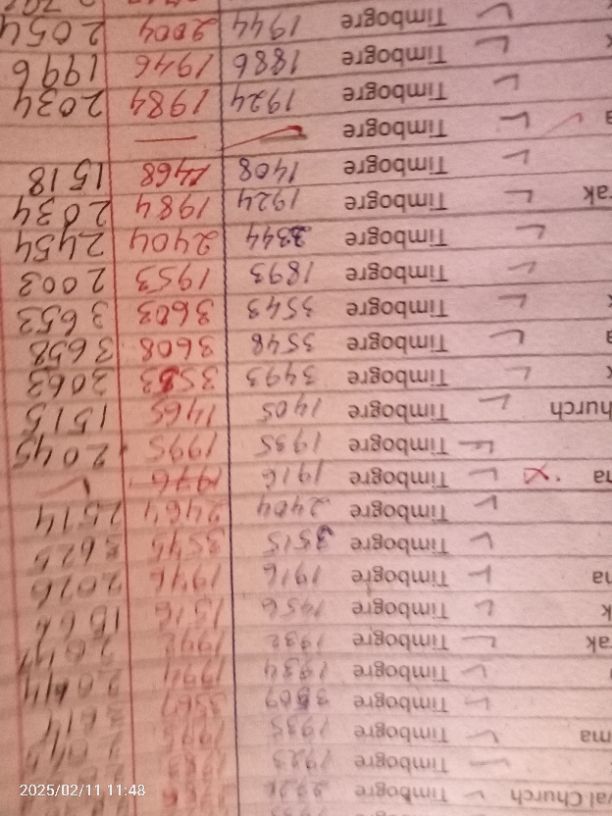 val Church Timbogre
Timbogre 1923
ma Timbogre 1935
Timbogre 3509 3569
Timbogre 1934 1994 2044
rak Timbogre 1932 1992
k Timbogre 1456 1516 1566
na Timbogre 1916 2026
Timbogre 3515 3575 3625
Timbogre 2404 2464 2514
na Timbogre 1916 1976
Timbogre 1935 1995 2045
hurch Timbogre 1405 1465 1515
k Timbogre 3493 3063
a Timbogre 3548 3608 3658
k Timbogre 3543 3603 3653
Timbogre 1893 1953 2003
Timbogre 2344 2404 2454
rak Timbogre 1924 1984 2034
Timbogre 1408 1468 1518
a Timbogre — —
Timbogre 1924 1984 2034
k Timbogre 1886 1946 1996
Timbogre 1944 2004 2054
2025/02/11 11:48